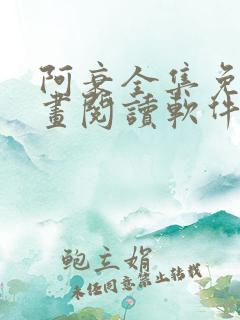 阿衰全集免
畫閱讀軟件
鲍主娟
未经同意禁止转载